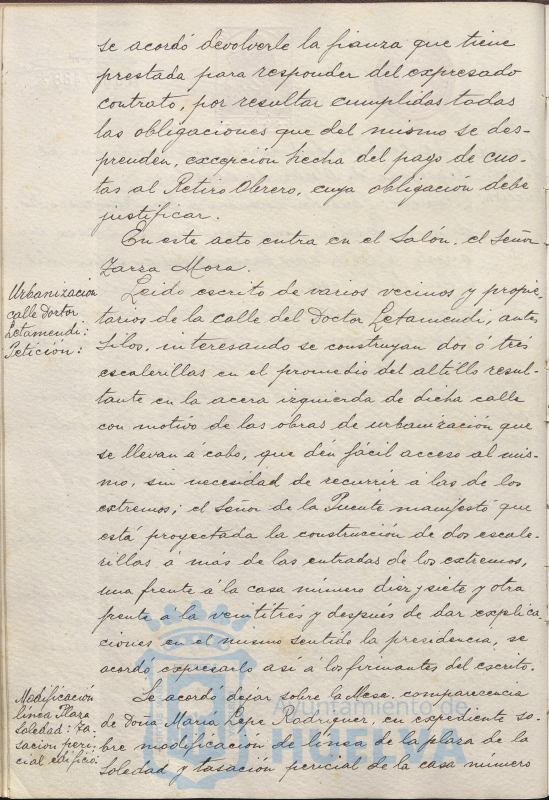 se acordó devolverle la fianza que tiene
prestada para responder del expresado
contrato, por resultar cumplidas todas
las obligaciones que del mismo se des-
prenden, excepción hecha del pago de cuo-
tas al Retiro Obrero, cuya obligación debe
justificar.
En este acto entra en el Salón, el Señor
Zarza Mora.
Urbanización
calle Doctor
Letamendi:
Petición:
Leido escrito de varios vecinos y propie-
tarios de la calle del Doctor Letamendi, antes
Silos, interesando se construyan dos ó trés
escalerillas en el promedio del altillo resul-
tante en la acera izquierda de dicha calle
con motivo de las obras de urbanización que
se llevan á cabo, que dén fácil acceso al mis-
mo, sin necesidad de recurrir á las de los
extremos; el Señor de la Puente manifestó que
está proyectada la construcción de dos escale-
rillas á más de las entradas de los extremos,
una frente á la casa número diez y siete y otra
frente á la veintitrés y después de dar explica-
ciones en el mismo sentido la presidencia, se
acordó expresarlo así á los firmantes del escrito.
Modificación
línea Plaza
Soledad: Ta-
sación peri-
cial edificio:
Se acordó dejar sobre la Mesa, comparecencia
de Doña María Pepe Rodríguez, en expediente so-
bre modificación de línea de la plaza de la
Soledad y tasación pericial de la casa número
Ayuntamiento de
HUELVA